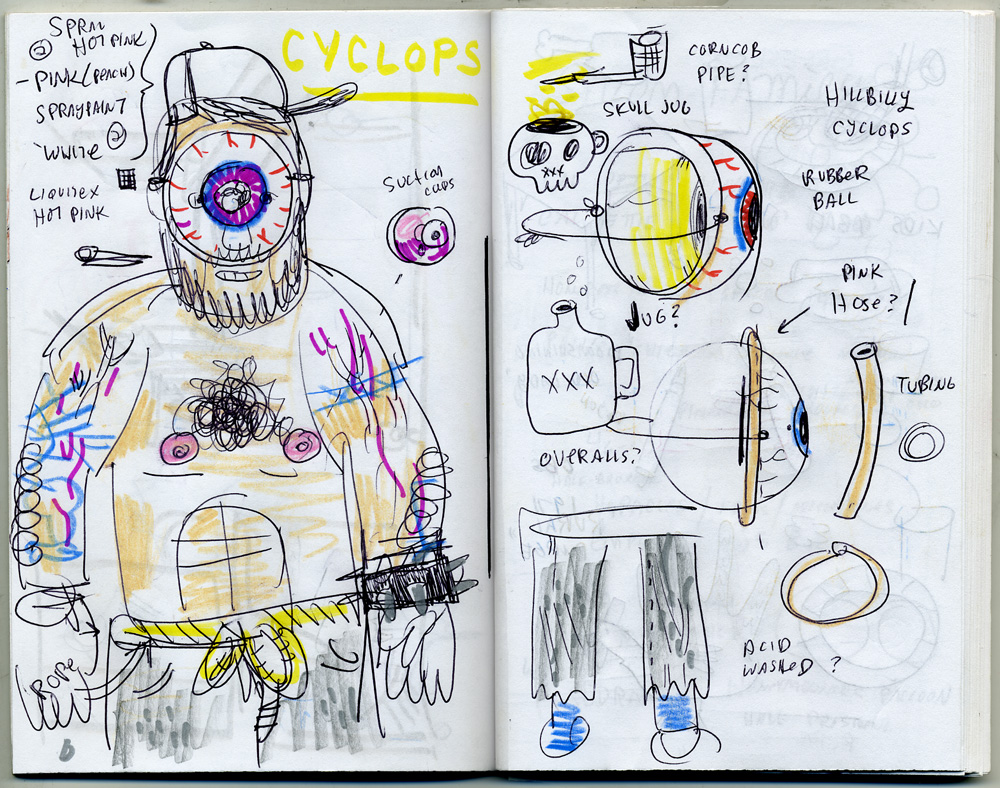 SPRAY
② HOT PINK
- PINK (PEACH)
SPRAYPAINT
WHITE ②
LIQUITEX
HOT PINK
CYCLOPS
SUCTION
CUPS
ROPE
6
CORNCOB
PIPE?
SKULL JUG
XXX
HILLBILLY
CYCLOPS
RUBBER
BALL
PINK
HOSE?
JUG?
XXX
TUBING
OVERALLS?
ACID
WASHED ?